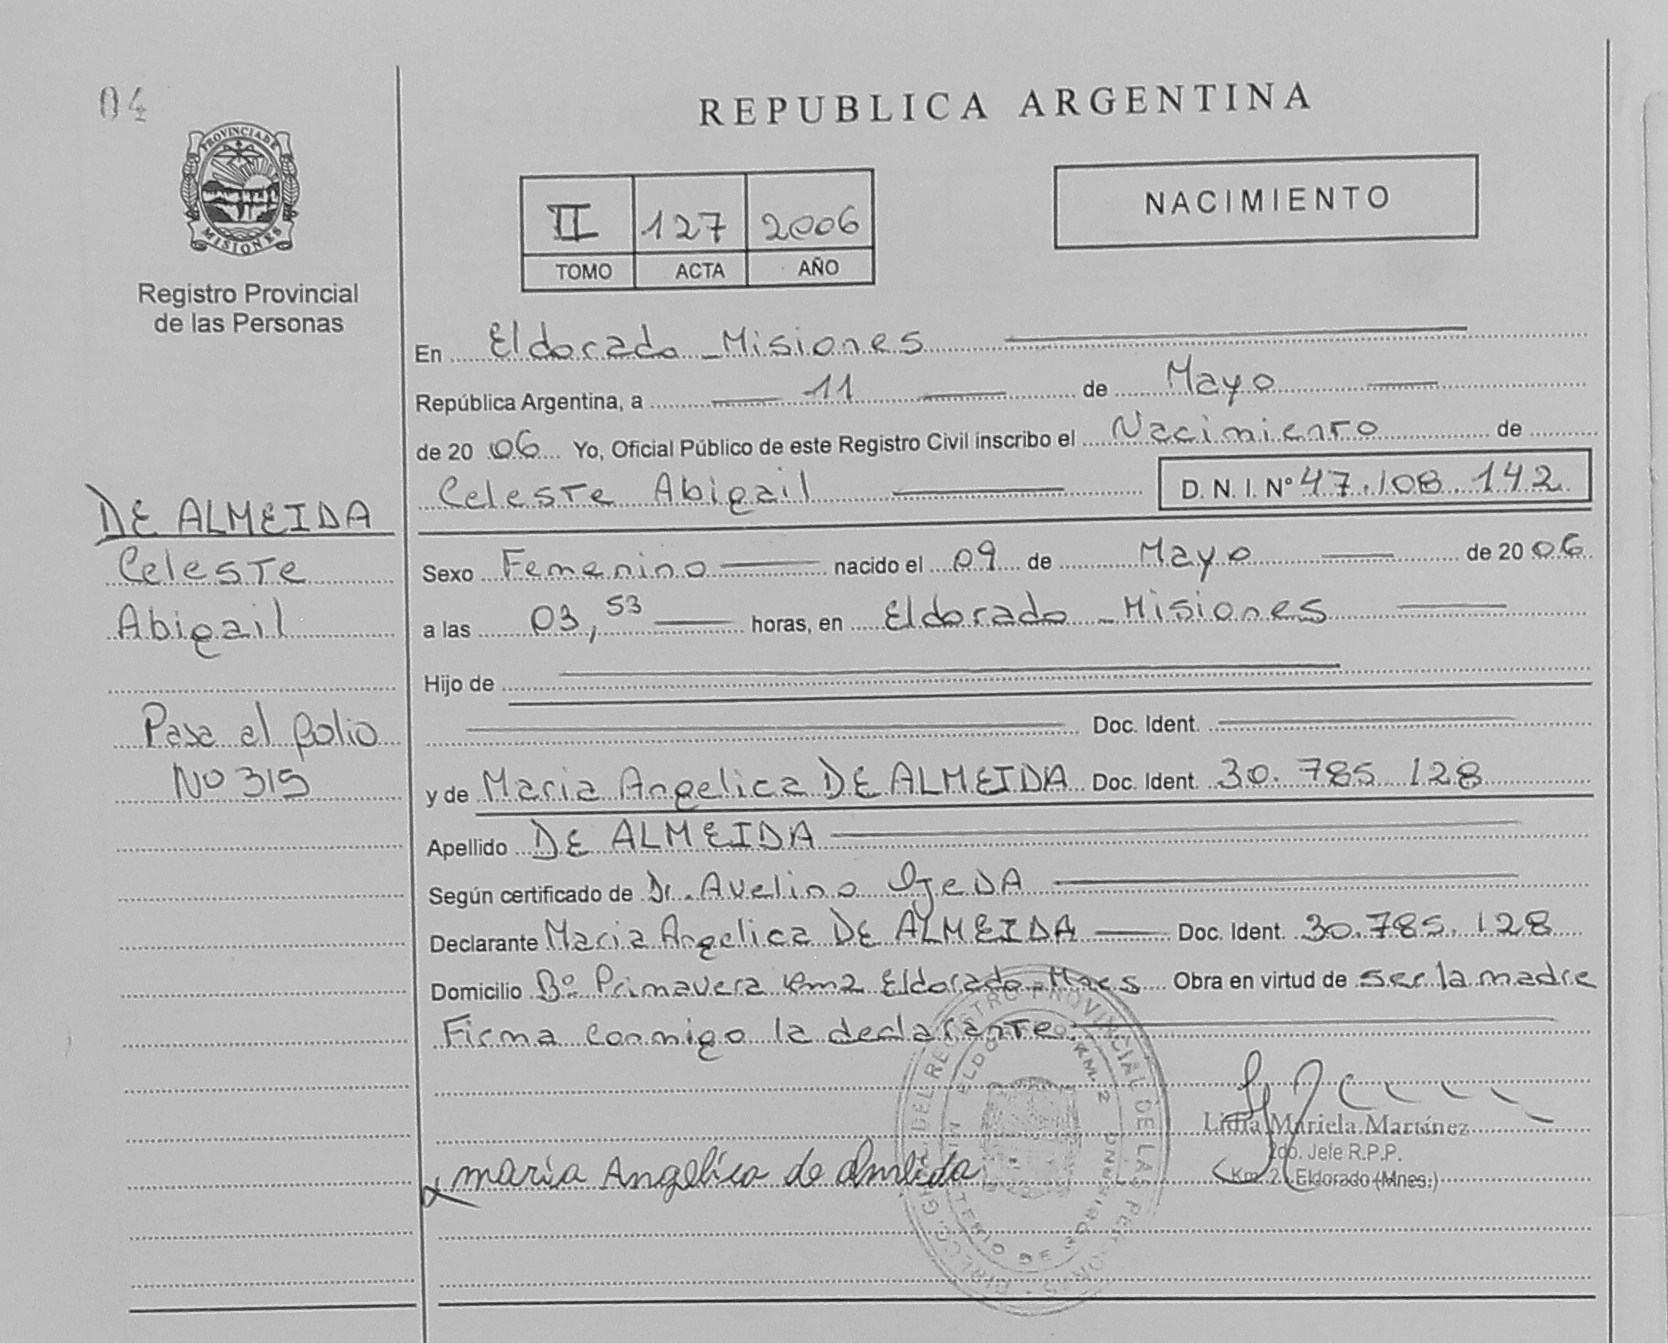 04
REPUBLICA ARGENTINA
PROVINCIA DE
MISIONES
Registro Provincial
de las Personas
II 127 2006
TOMO ACTA AÑO
NACIMIENTO
En Eldorado - Misiones
República Argentina, a 11 de Mayo
de 2006 Yo, Oficial Público de este Registro Civil inscribo el Nacimiento de
Celeste Abigail D. N. I. N° 47.108.142
DE ALMEIDA
Celeste
Abigail
Pasa al folio
No 315
Sexo Femenino nacido el 09 de Mayo de 2006
a las 03,53 horas, en Eldorado - Misiones
Hijo de
Doc. Ident.
y de Maria Angelica DE ALMEIDA Doc. Ident. 30.785.128
Apellido DE ALMEIDA
Según certificado de Dr. Avelino OjeDA
Declarante Maria Angelica DE ALMEIDA Doc. Ident. 30.785.128
Domicilio Bº Primavera km2 Eldorado - Mnes Obra en virtud de ser la madre
Firma conmigo la declarante.
Lidia Mariela Martínez
2do. Jefe R.P.P.
Km. 2 - Eldorado (Mnes.)
maria Angélica de Almeida
DEL REGISTRO PROVINCIAL DE LAS PERSONAS
KM. 2